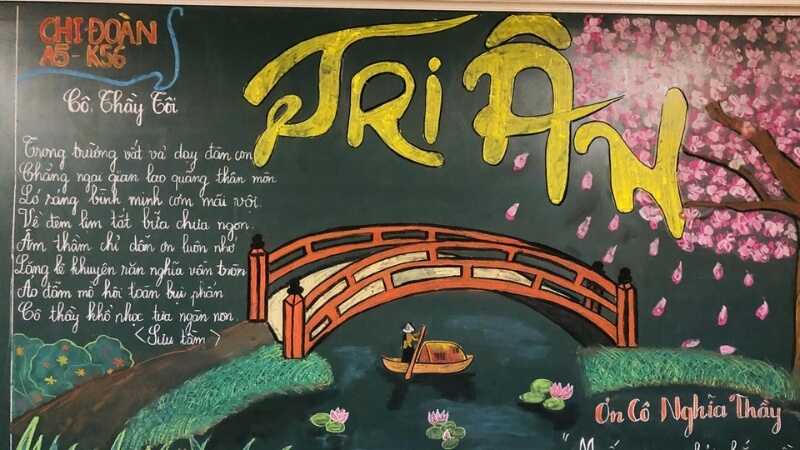 CHI ĐOÀN
A5 - K56
TRI ÂN
Cô, Thầy Tôi
Trong trường vất vả dạy đàn con
Chẳng ngại gian lao quãng thân mòn
Ló sáng bình minh cơm mải vội
Về đêm lim tắt bữa chưa ngon
Âm thầm chỉ dẫn ơn luôn nhớ
Lặng lẽ khuyên răn nghĩa vẫn tròn
Áo đẫm mồ hôi toàn bụi phấn
Cô thầy khổ nhọc tựa ngàn non
<Sưu tầm>
Ơn Cô Nghĩa Thầy